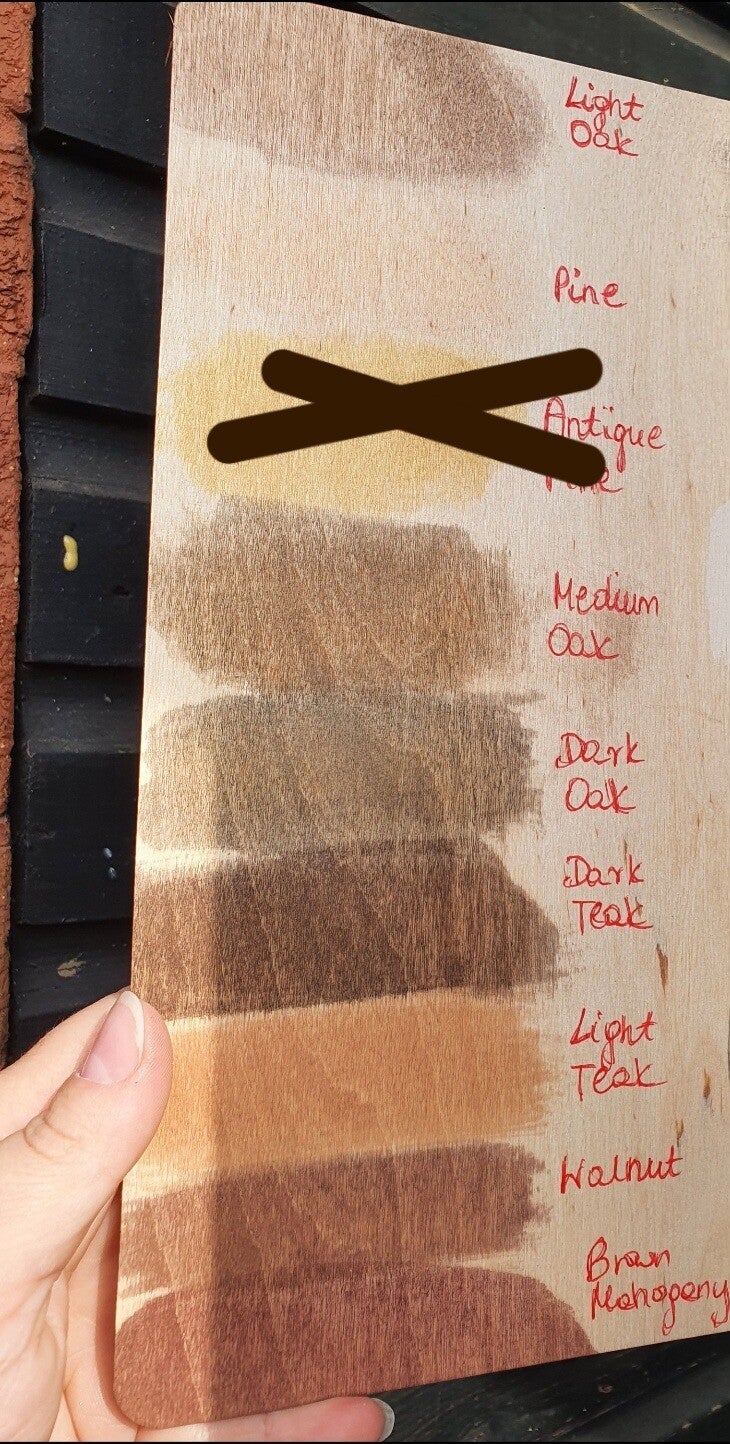 Light
Oak
Pine
Antique
Pine
Medium
Oak
Dark
Oak
Dark
Teak
Light
Teak
Walnut
Brown
Mahogany